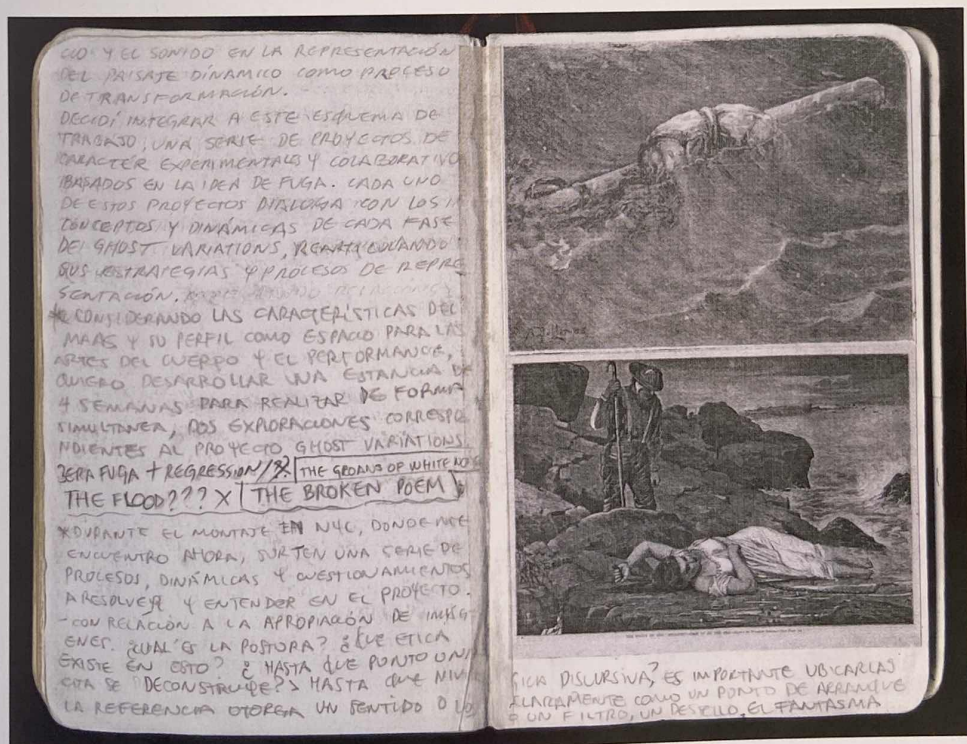 CIO Y EL SONIDO EN LA REPRESENTACIÓN
DEL PAISAJE DINÁMICO COMO PROCESO
DE TRANSFORMACIÓN. -
DECIDÍ INTEGRAR A ESTE ESQUEMA DE
TRABAJO, UNA SERIE DE PROYECTOS DE
CARACTER EXPERIMENTALES Y COLABORATIVO
BASADOS EN LA IDEA DE FUGA. CADA UNO
DE ESTOS PROYECTOS DIALOGA CON LOS
CONCEPTOS Y DINÁMICAS DE CADA FASE
DE GHOST VARIATIONS, REARTICULANDO
SUS ESTRATEGIAS Y PROCESOS DE REPRE
SENTACIÓN.
* CONSIDERANDO LAS CARACTERÍSTICAS DEL
MAAS Y SU PERFIL COMO ESPACIO PARA LAS
ARTES DEL CUERPO Y EL PERFORMANCE,
QUIERO DESARROLLAR UNA ESTANCIA DE
4 SEMANAS PARA REALIZAR DE FORMA
SIMULTANEA, DOS EXPLORACIONES CORRESPO
NDIENTES AL PROYECTO GHOST VARIATIONS.
3ERA FUGA + REGRESSION / THE GROANS OF WHITE NO
THE FLOOD??? X THE BROKEN POEM
* DURANTE EL MONTAJE EN NYC, DONDE ME
ENCUENTRO AHORA, SURTEN UNA SERIE DE
PROCESOS, DINÁMICAS Y CUESTIONAMIENTOS
A RESOLVER Y ENTENDER EN EL PROYECTO.
- CON RELACIÓN A LA APROPIACIÓN DE IMÁG
ENES. ¿CUÁL ES LA POSTURA? ¿QUE ETICA
EXISTE EN ESTO? ¿HASTA QUE PUNTO UNA
CITA SE DECONSTRUYE? HASTA QUE NIV
LA REFERENCIA OTORGA UN SENTIDO O LO
SICA DISCURSIVA, ES IMPORTANTE UBICARLAS
CLARAMENTE COMO UN PUNTO DE ARRANQUE
O UN FILTRO, UN DESTELLO, EL FANTASMA